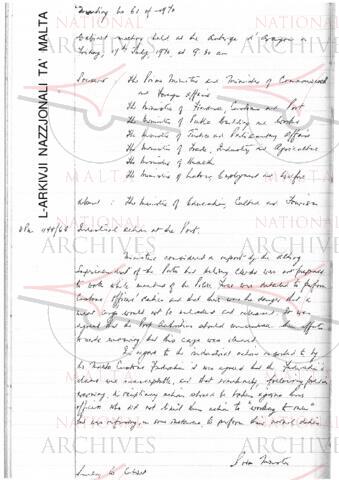 Meeting No 61 of 1970
Cabinet meeting held at the Auberge d'Aragon on
Friday, July, 1970, at 9.30 am
Present : The Prime Minister and Minister of Commonwealth
and Foreign Affairs
The Minister of Finance, Customs and Port
The Minister of Public Building and Works
The Minister of Justice and Parliamentary Affairs
The Minister of Trade, Industry and Agriculture
The Minister of Health
The Minister of Labour, Employment and Welfare
Absent : The Minister of Education, Culture and Tourism
Industrial action at the Port.
Ministers considered a report by the Acting
Superintendent of the Ports that Clerks were not prepared
to work while members of the Police Force were detailed to perform
Customs Officers' duties and that there was the danger that a
cargo would not be unloaded and released. It was
agreed that the Port Authorities should their efforts
to that this cargo was cleared.
In regard to the industrial action resorted to by
the Customs Federation it was agreed that the Federation's
claims was unacceptable, and that
warning, disciplinary action should be taken against those
officers who did not limit their action to "working to rule"
but were refusing, in some instances to perform their normal duties.
Prime Minister
Secretary to Cabinet
L-ARKIVJI NAZZJONALI TA' MALTA
NATIONAL
ARCHIVES
NATIONAL
ARCHIVES
NATIONAL
ARCHIVES
NATIONAL
ARCHIVES